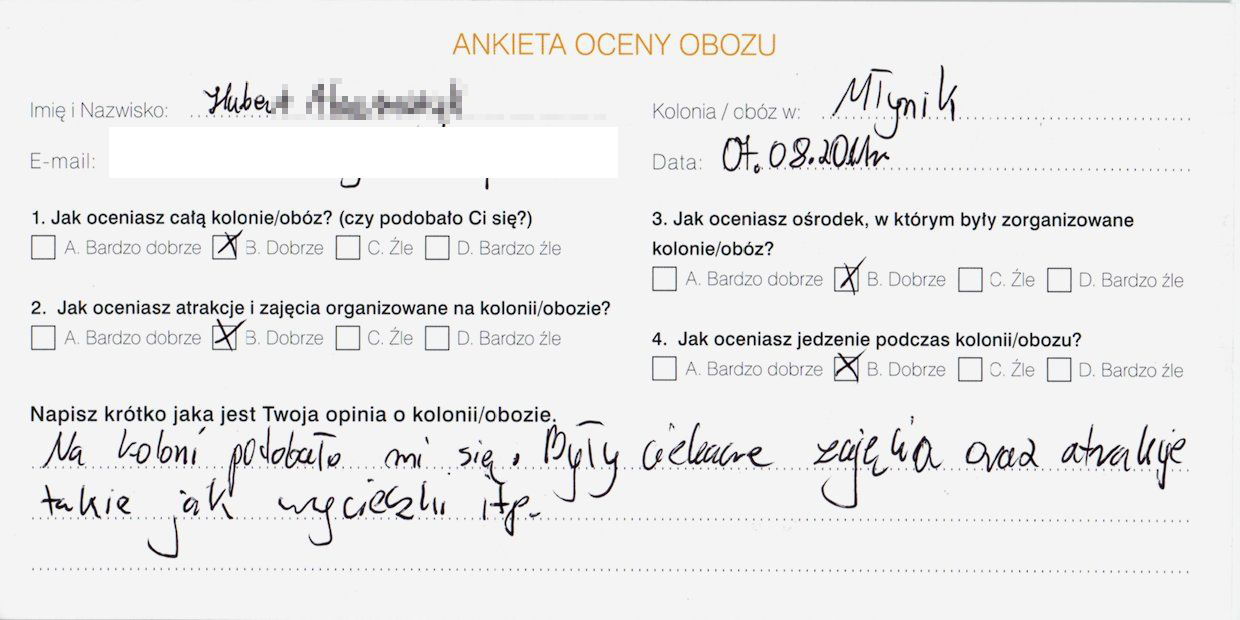 ANKIETA OCENY OBOZU
Imię i Nazwisko: Hubert
Kolonia / obóz w: Młynik
E-mail:
Data: 07.08.2011r.
1. Jak oceniasz całą kolonie/obóz? (czy podobało Ci się?)
A. Bardzo dobrze B. Dobrze C. Źle D. Bardzo źle
2. Jak oceniasz atrakcje i zajęcia organizowane na kolonii/obozie?
A. Bardzo dobrze B. Dobrze C. Źle D. Bardzo źle
3. Jak oceniasz ośrodek, w którym były zorganizowane
kolonie/obóz?
A. Bardzo dobrze B. Dobrze C. Źle D. Bardzo źle
4. Jak oceniasz jedzenie podczas kolonii/obozu?
A. Bardzo dobrze B. Dobrze C. Źle D. Bardzo źle
Napisz krótko jaka jest Twoja opinia o kolonii/obozie.
Na koloni podobało mi się. Były ciekawe zajęcia oraz atrakcje
takie jak wycieczki itp.